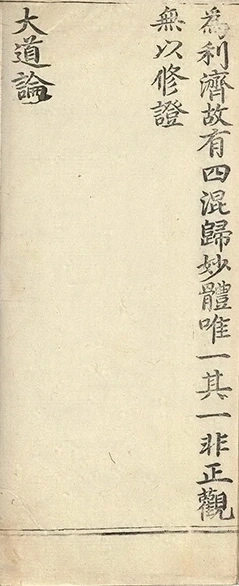 為利濟故有四混歸妙體唯一其一非正觀
無以修證
大道論